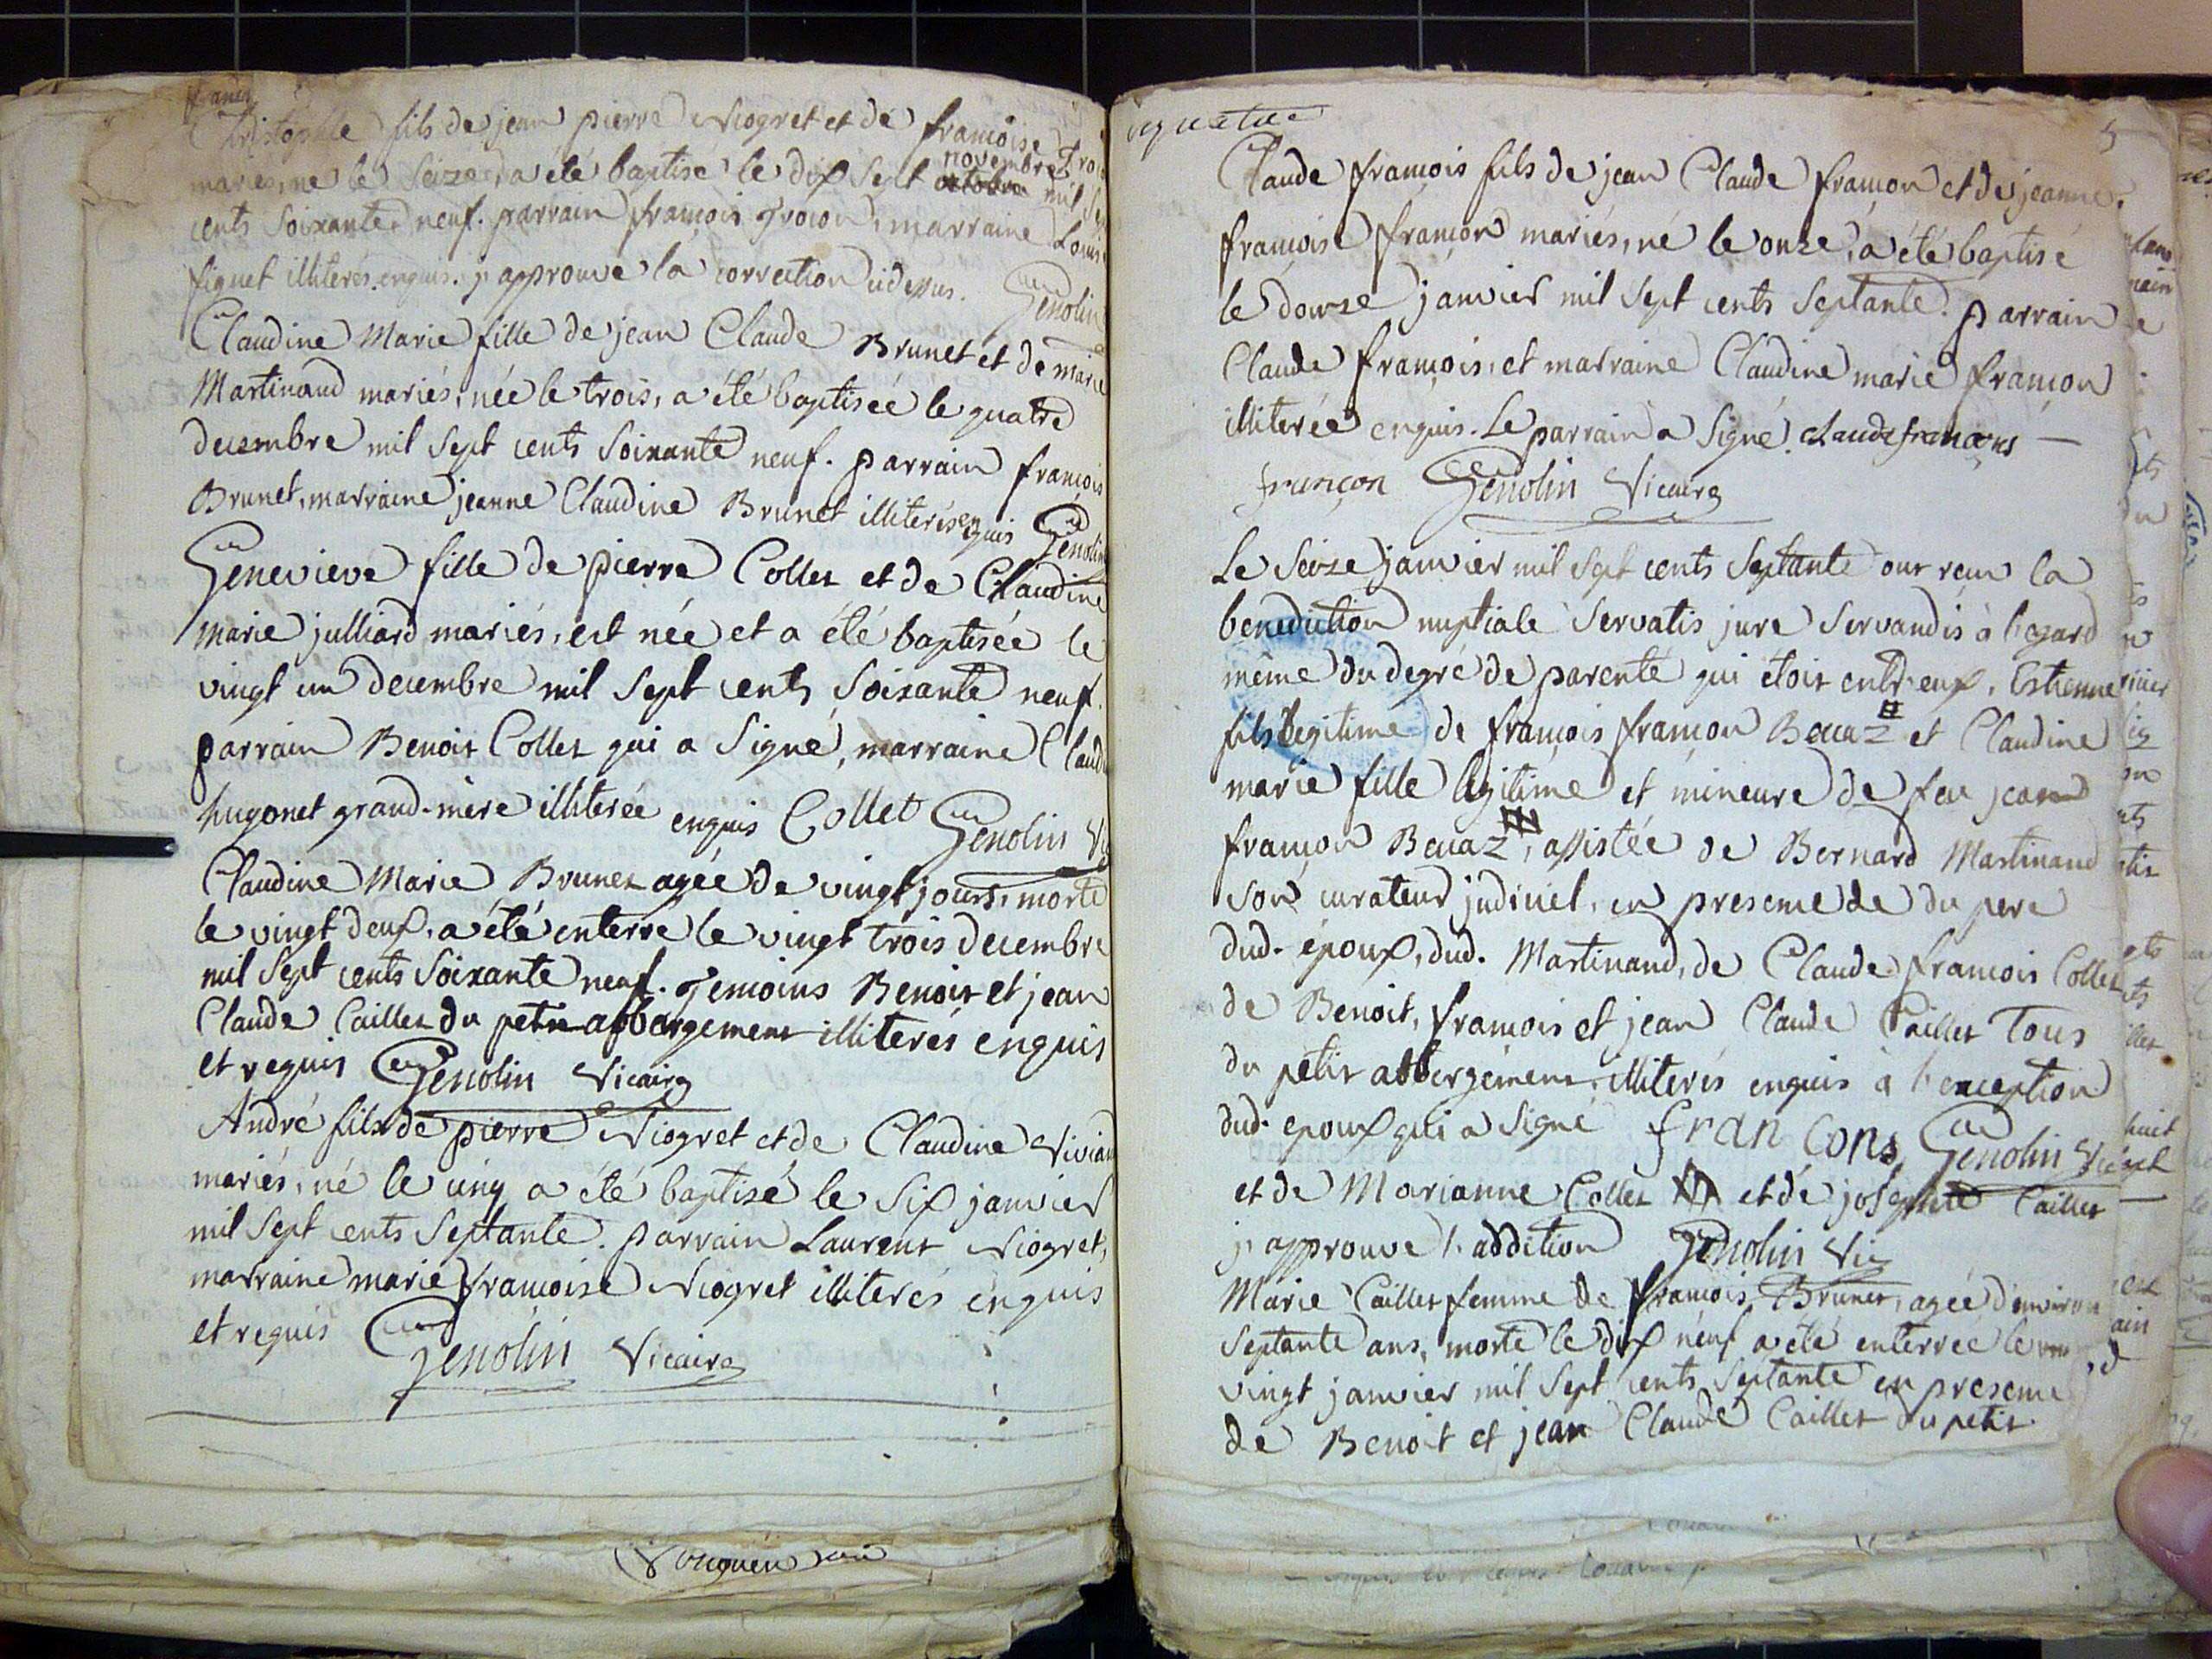 Christophle fils de jean pierre Niogret et de francoise
mariés, né le seize, a été baptisé le dix sept novembre octobre mil
cents soixante neuf. parrain francois Trocon, marraine Louise
figuet illiterés enquis. j'approuve la correction cidessus. Genolin
Claudine Marie fille de jean Claude Brunet et de marie
Martinand mariés, née le trois, a été baptisée le quatre
decembre mil sept cents soixante neuf. parrain francois
Brunet, marraine jeanne Claudine Brunet illiterés enquis Genolin
Genevieve fille de pierre Collet et de Claudine
marie julliard mariés, est née et a été baptisée le
vingt un decembre mil sept cents soixante neuf.
parrain Benoit Collet qui a signé, marraine
hugonet grand-mère illiterée enquis Collet Genolin
Claudine Marie Brunet agée de vingt jours, morte
le vingt deux, a été enterré le vingt trois decembre
mil sept cents soixante neuf. Temoins Benoit et jean
Claude Caillet du petit abbergement illiterés enquis
et requis Genolin Vicaire
André fils de pierre Niogret et de Claudine
mariés, né le cinq a été baptisé le six janvier
mil sept cents septante. parrain Laurent Niogret,
marraine marie francoise Niogret illiterés enquis
et requis Genolin Vicaire
5
Claude francois fils de jean Claude françon et de jeanne
francoise françon mariés, né le onze, a été baptisé
le douze janvier mil sept cents septante. parrain
Claude francois, et marraine Claudine marie françon
illiterée enquis. Le parrain a signé. Claude françois
françon Genolin Vicaire
Le seize janvier mil sept cents septante ont reçu la
benediction nuptiale servatis jure servandis à l'egard
même du degré de parenté qui étoit entr'eux, Estienne
fils legitime de francois françon Becaz # et Claudine
marie fille legitime et mineure de feu jean
françon Becaz, assistée de Bernard Martinand
son curateur judiciel, en presence de du pere
dud. époux, dud. Martinand, de Claude francois Collet
de Benoit, francois et jean Claude Caillet Tous
du petit abbergement, illiterés enquis à l'exception
dud. epoux qui a signé fran cons Genolin
et de Marianne Collet et de josephte Caillet
j'approuve l'addition Genolin Vic
Marie Caillet femme de francois Brunet, agée d'environ
septante ans, morte le dix neuf a été enterrée le
vingt janvier mil sept cents septante en presence
de Benoit et jean Claude Caillet du petit